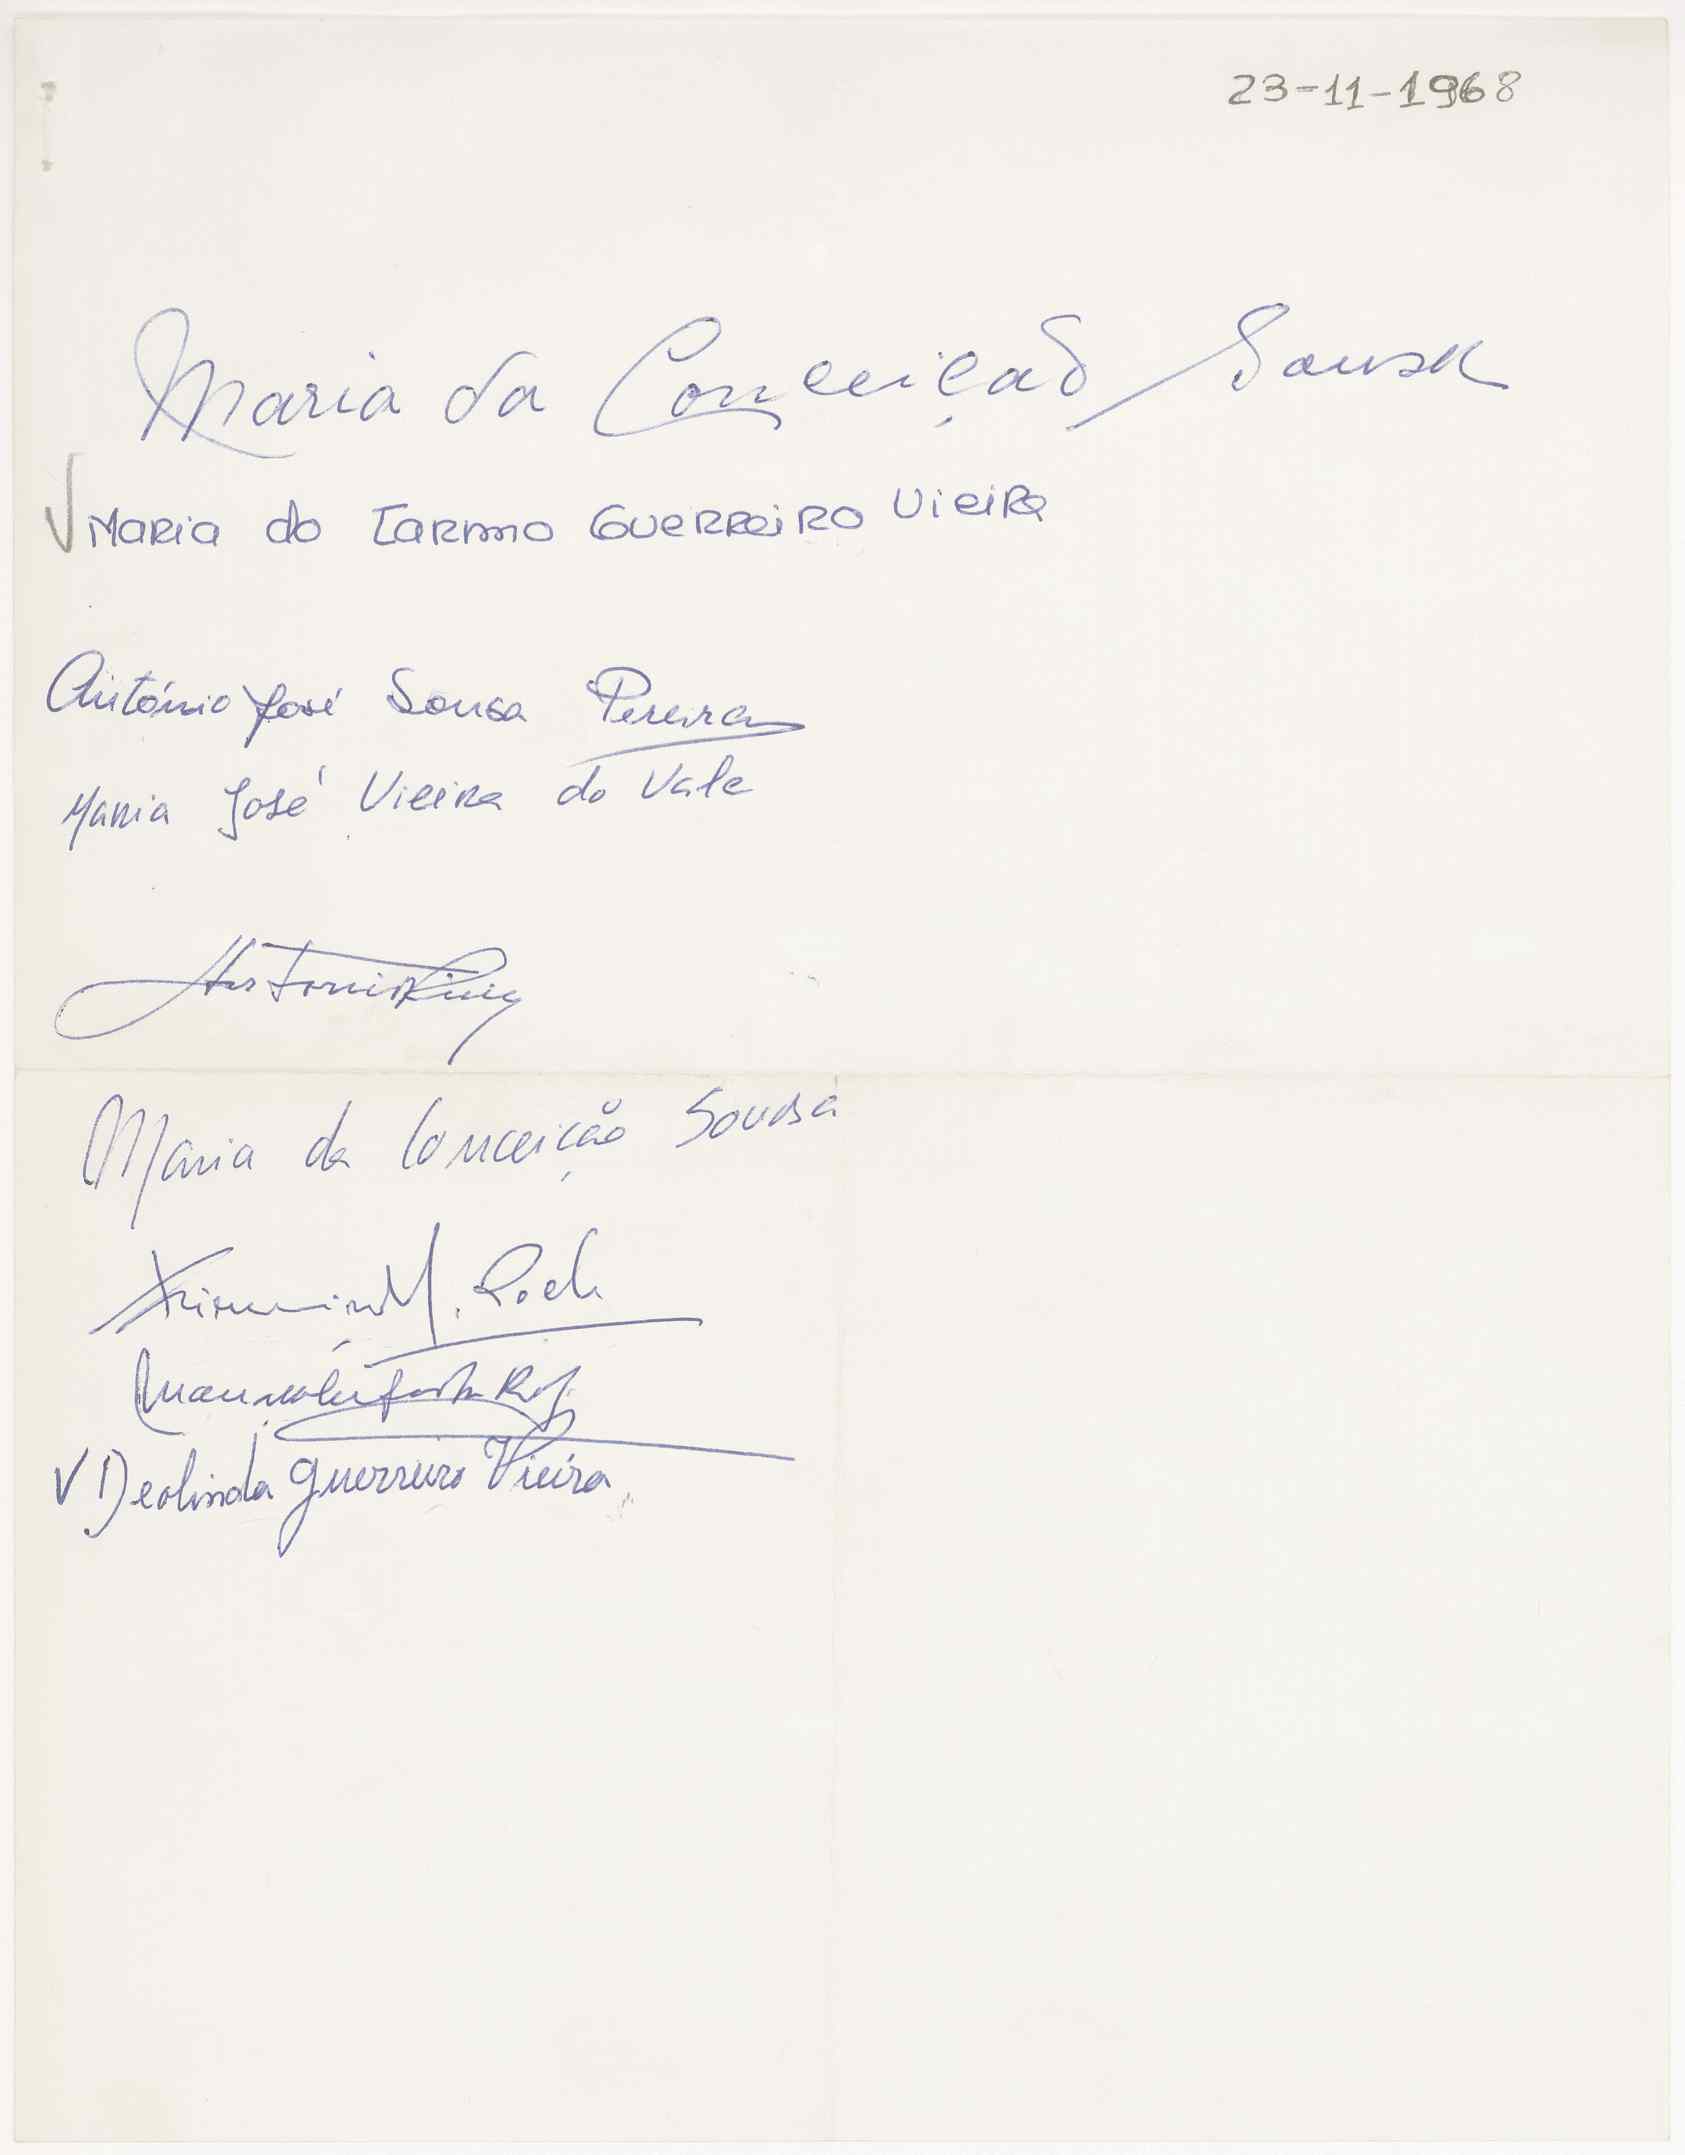 23-11-1968
Maria da Conceição Sousa
Maria do Carmo Guerreiro Vieira
António José Sousa Pereira
Maria José Vieira do Vale
Maria da Conceição Sousa
M.
V Deolinda Guerreiro Vieira